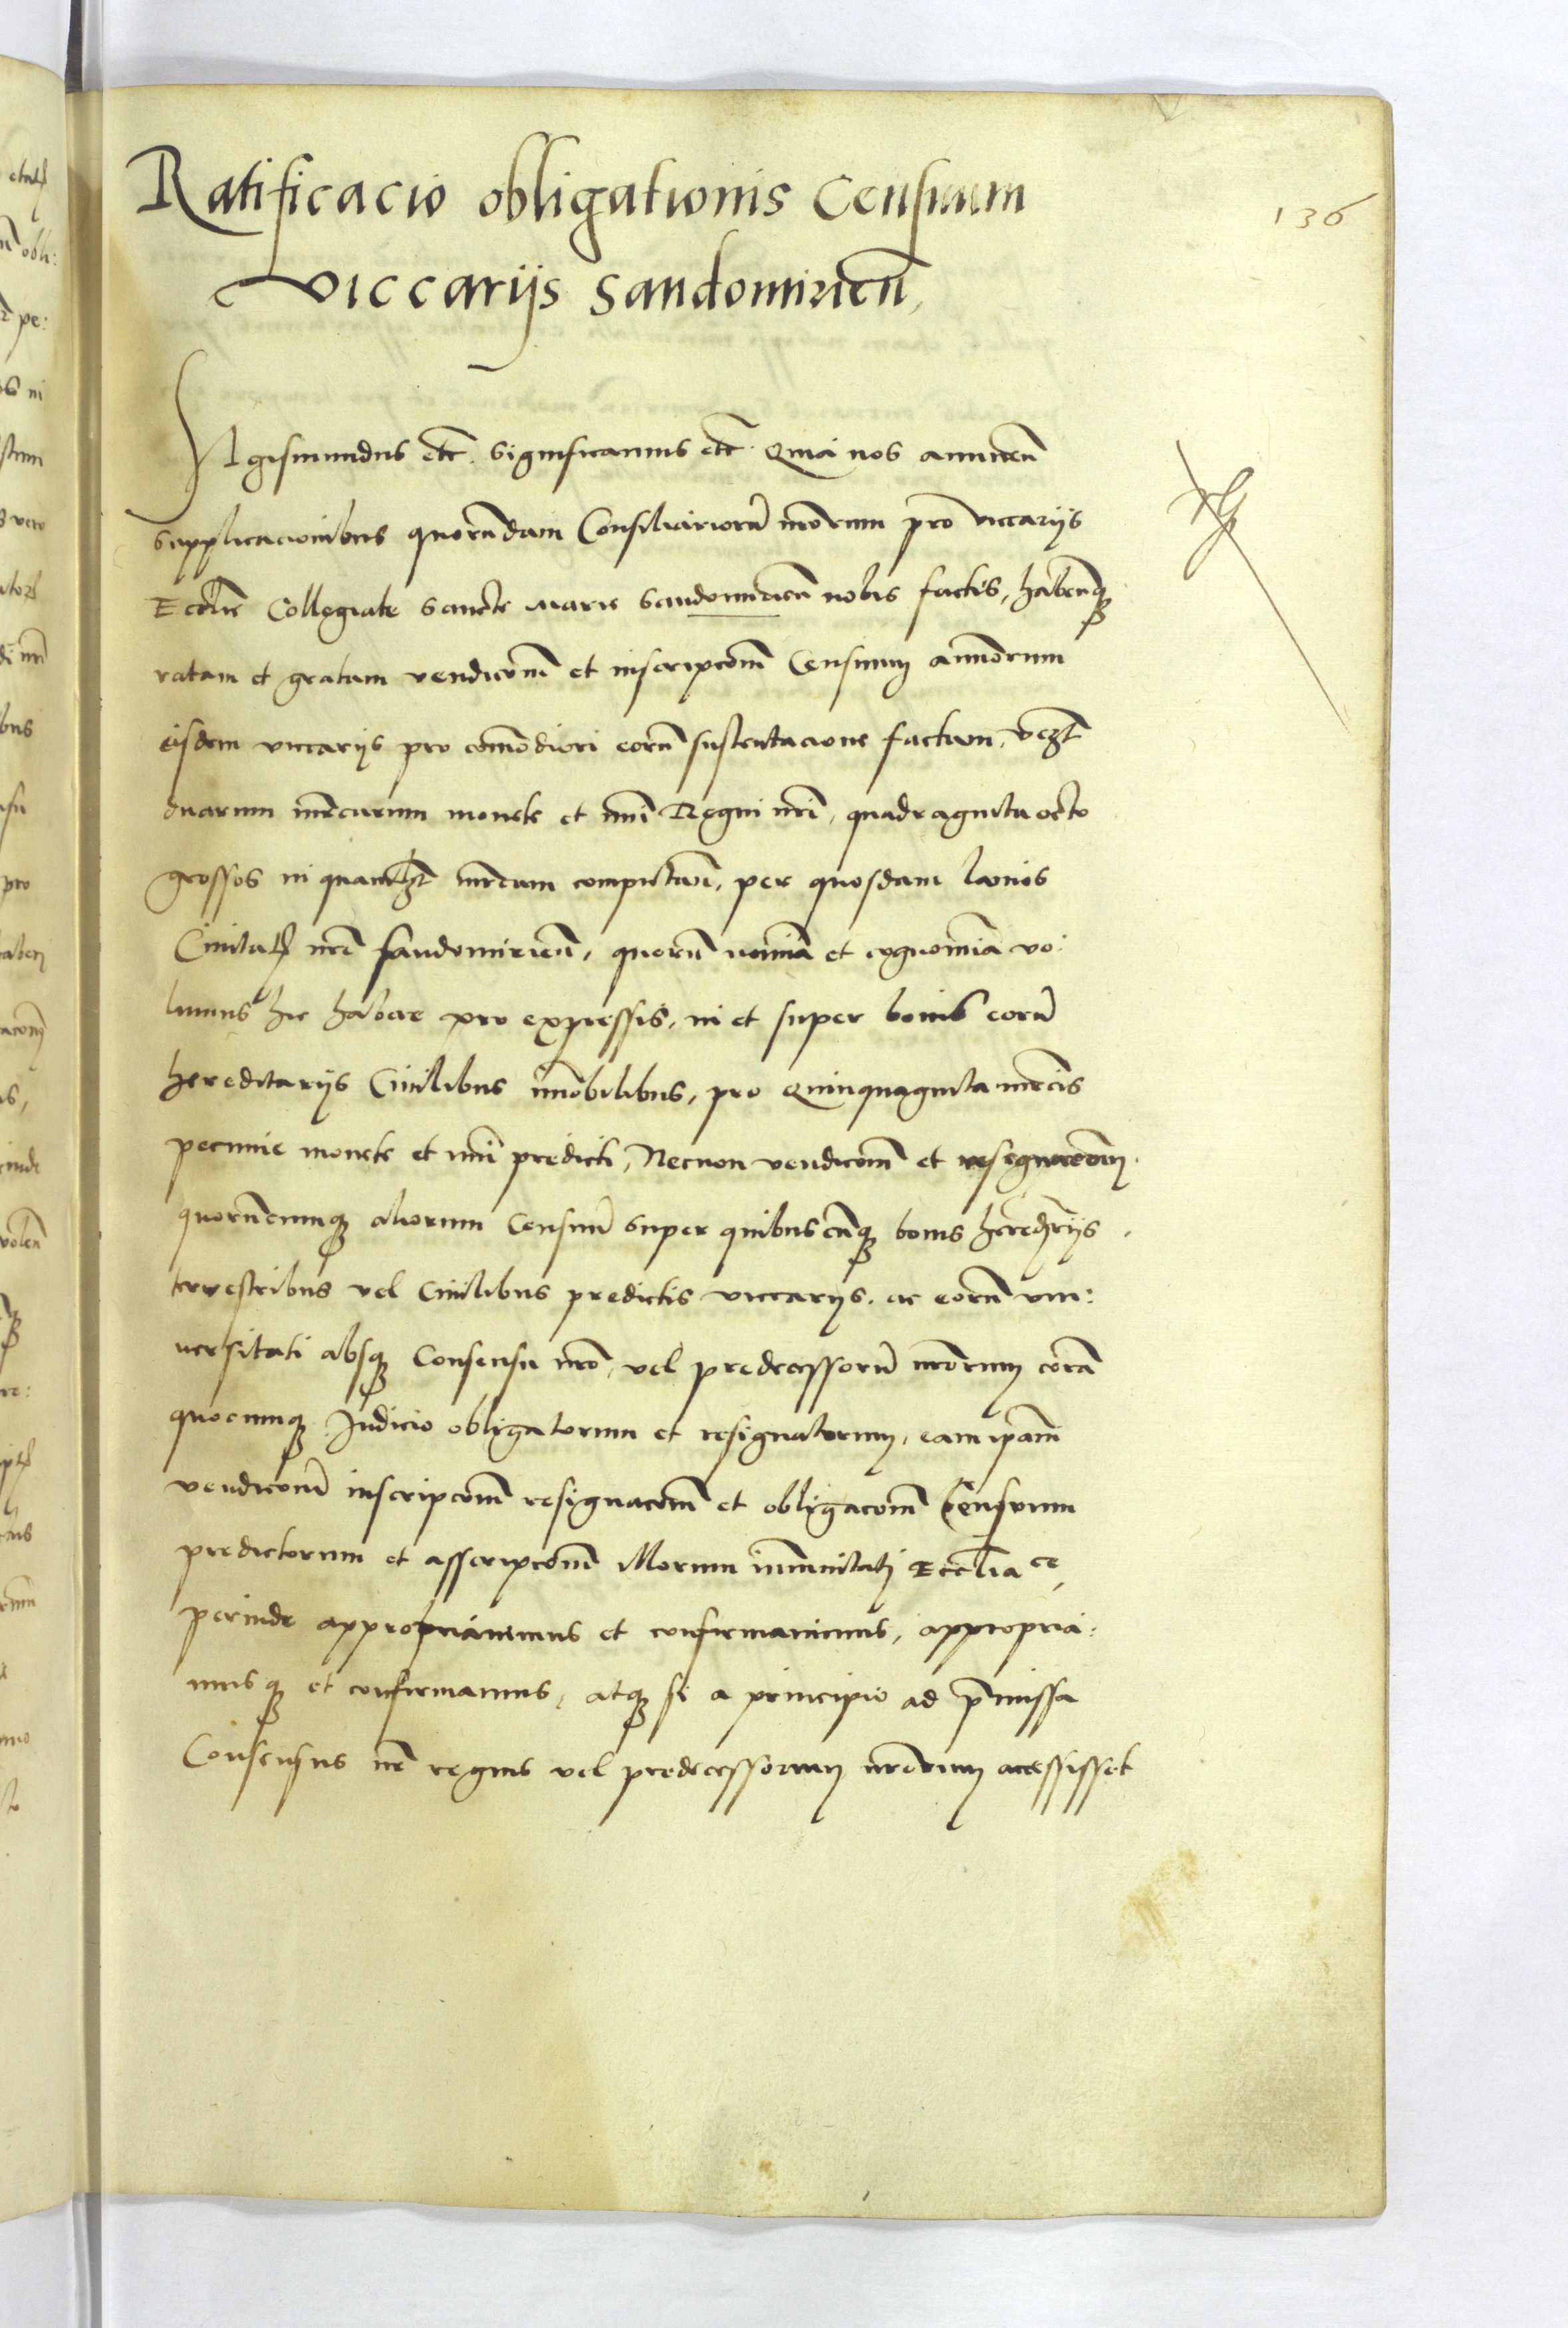 136
Ratificacio obligationis Censuum
viccarijs Sandomiricñ
Sigismundus etc̃. Significamus etc̃. Quia nos annuceñ
supplicacionibus quorundam Consiliariorũ nr̃orum pro viccarijs
Eccl̃ie Collegiate Sancte Marie Sandomiricñ nobis factis, habeñq̃
ratam et gratam vendicõm̃ et inscripcõm̃ Censuum annuorum
eisdem viccarijs pro com̃odiori eorũ sustentacione factam, vcz̃t
duarum mr̃carum monete et nũi Regni nr̃i, quadraginta octo
grossos in quaml̃zt mr̃cam computañ, per quosdam lanios
Civitatis nr̃e sandomiricñ, quorũ noĩa et cognoĩa vo:
lumus hic habere pro expressis, in et super bonis eorũ
hereditarijs Civilibus im̃obilibus, pro Quinquaginta mr̃cis
pecunie monete et nũi predicti, Necnon vendicõm̃ et resignacõm̃
quorũcumq̃ aliorum Censuũ super quibuscũq̃ bonis heredr̃ijs
terrestribus vel Civilibus predictis viccarijs, ac eorũ uni:
versitati absq̃ Consensu nr̃o, vel predecessorũ nr̃orum corã
quocumq̃ Judicio obligatorum et resignatorum, eam ip̃am
vendicõm̃ inscripcõm̃ resignacõm̃ et obligacõm̃ Censuum
predictorum et asscripcõm̃ illorum im̃unitati Eccl̃iace,
perinde appropriavimus et confirmavimus, appropria:
musq̃ et confirmamus, atq̃ si a principio ad p̃missa
Consensus nr̃ regius vel predecessorum nr̃orum accessisset